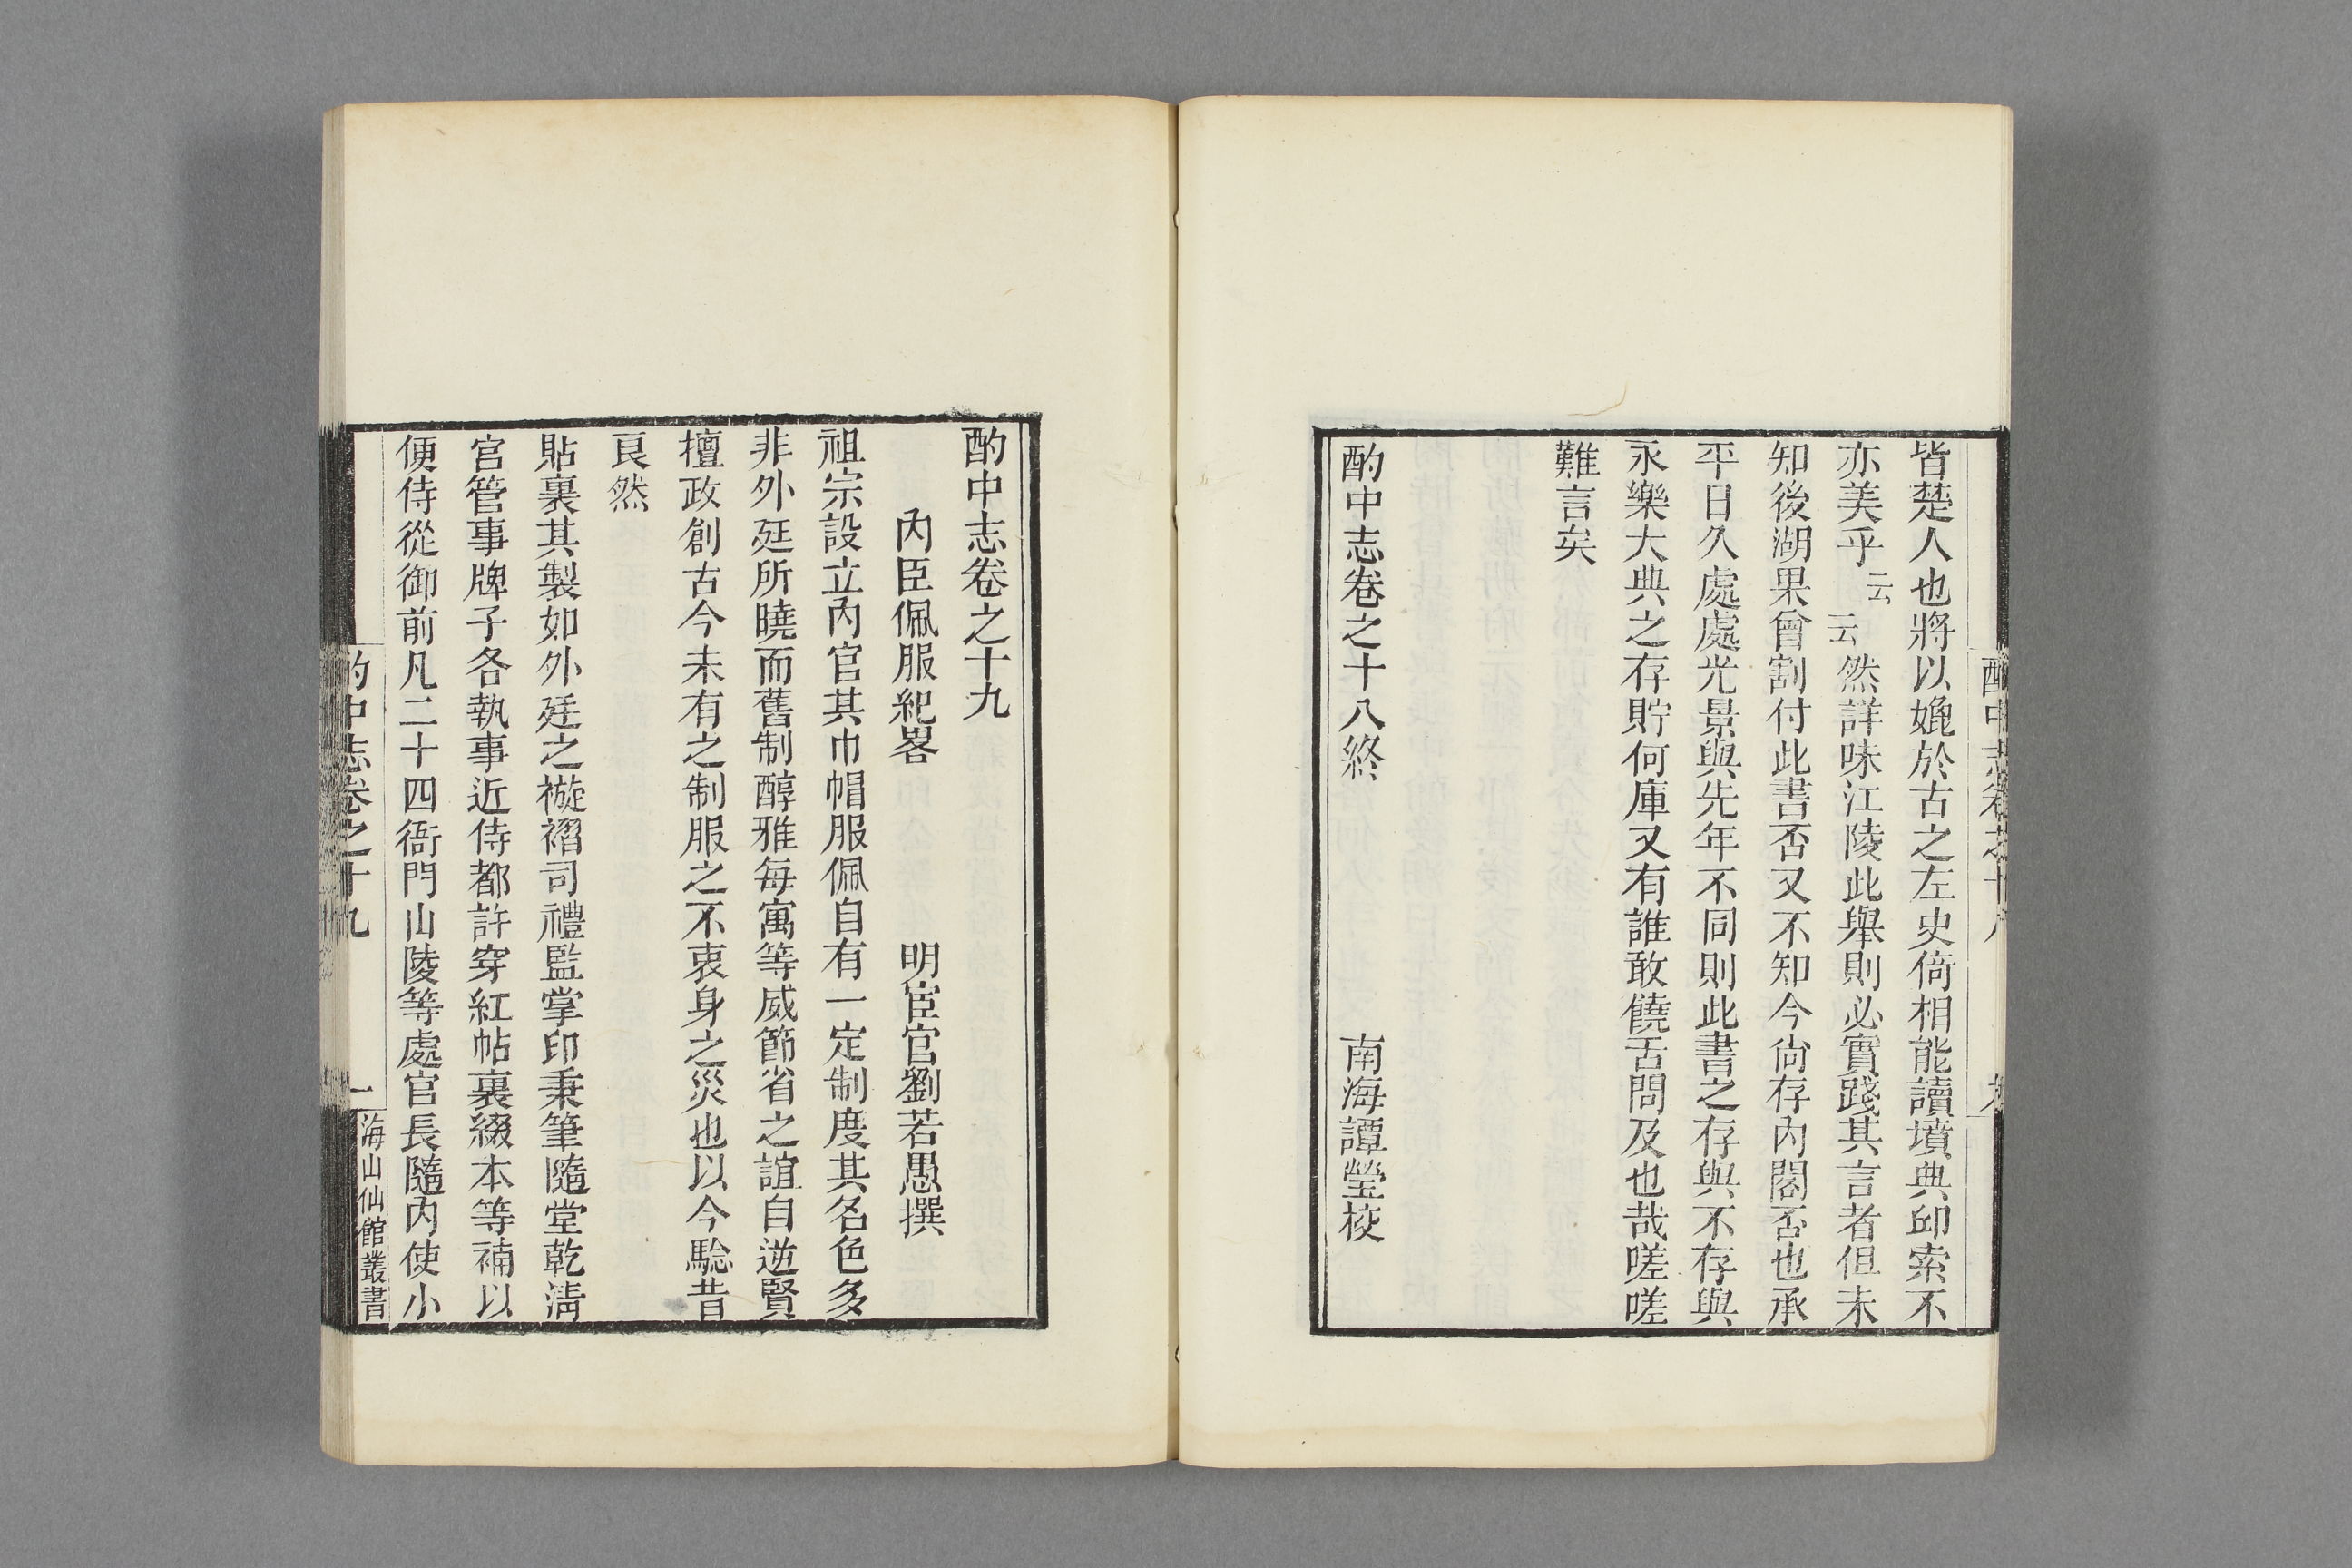 酌中志卷之十八
皆楚人也將以媲於古之左史倚相能讀墳典邱索不
亦美乎云云然詳味江陵此舉則必實踐其言者但未
知後湖果曾割付此書否又不知今尙存內閣否也承
平日久處處光景與先年不同則此書之存與不存與
永樂大典之存貯何庫又有誰敢饒舌問及也哉嗟嗟
難言矣
酌中志卷之十八終
南海譚瑩校
酌中志卷之十九
內臣佩服紀畧
明宦官劉若愚撰
祖宗設立內官其巾帽服佩自有一定制度其名色多
非外廷所曉而舊制醇雅每寓等威節省之誼自逆賢
擅政創古今未有之制服之不衷身之災也以今騐昔
良然
貼裏其製如外廷之𧛾褶司禮監掌印秉筆隨堂乾淸
官管事牌子各執事近侍都許穿紅帖裏綴本等補以
便侍從御前凡二十四衙門山陵等處官長隨內使小
酌中志卷之十九
一
海山仙館叢書